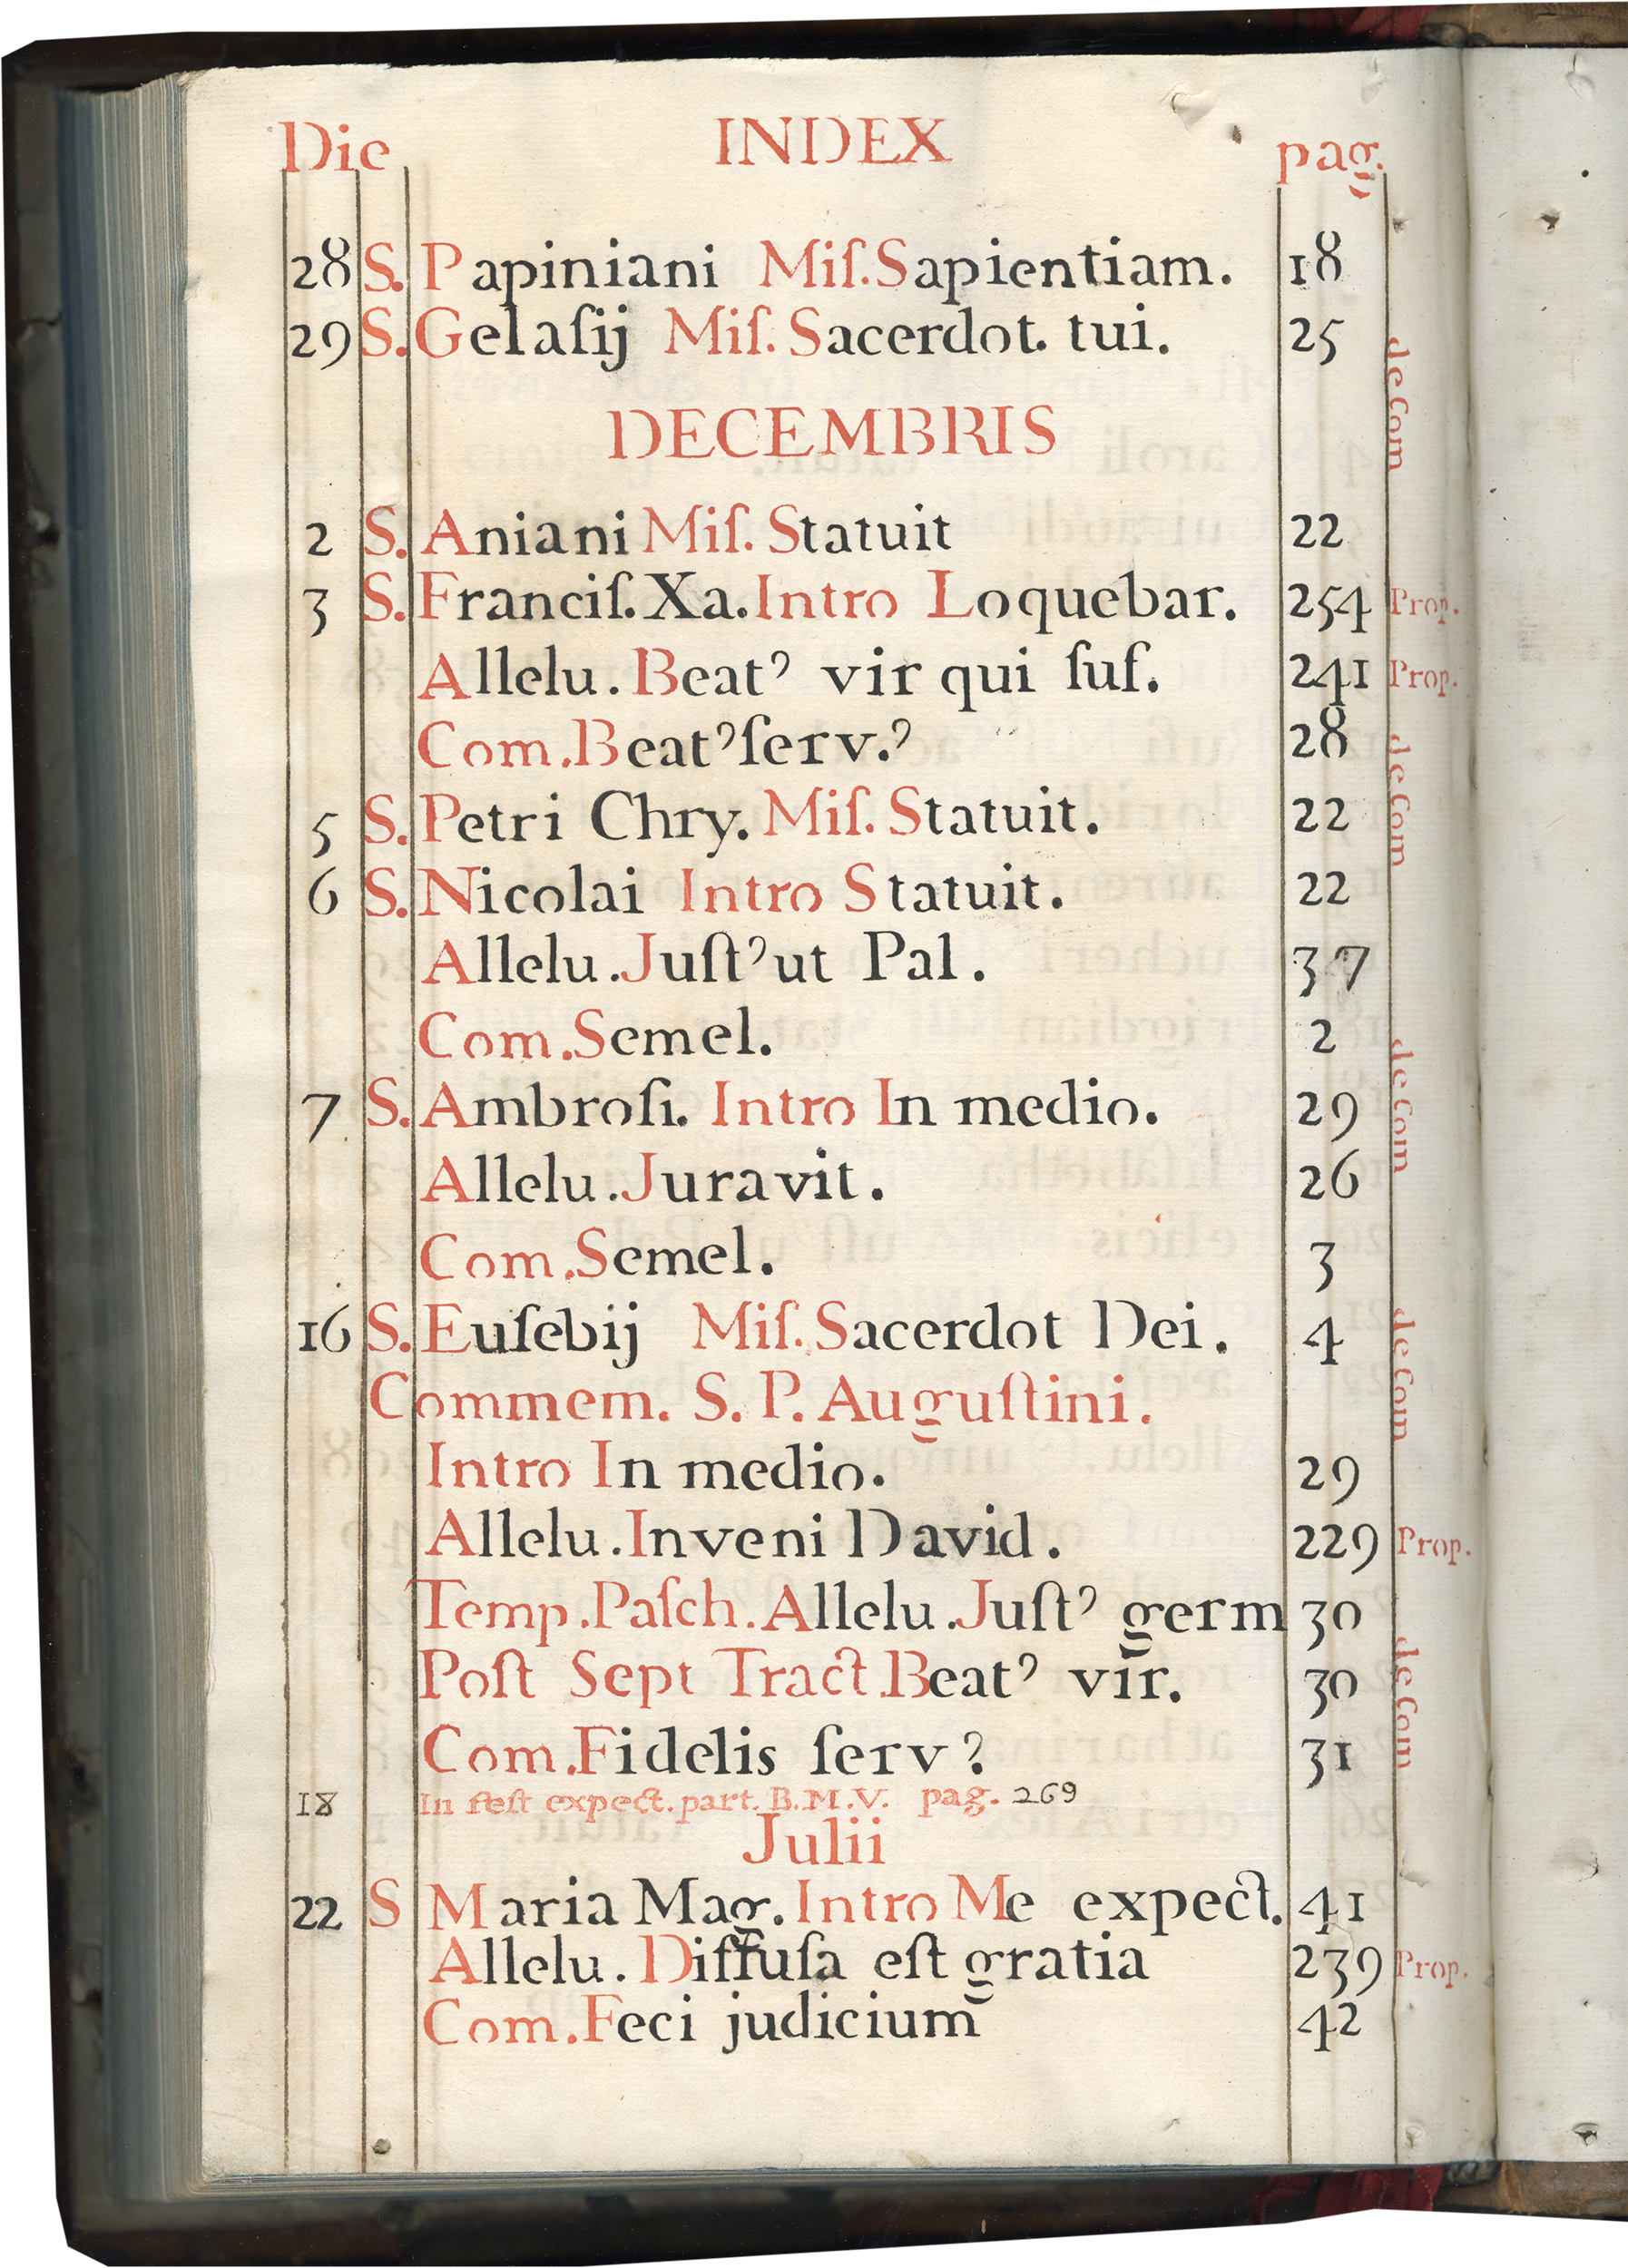 Die INDEX pag.
28 S. Papiniani Miſ. Sapientiam. 18
29 S. Gelaſij Miſ. Sacerdot. tui. 25
de Com
DECEMBRIS
2 S. Aniani Miſ. Statuit 22
3 S. Franciſ. Xa. Intro Loquebar. 254 Prop.
Allelu. Beatꝰ vir qui ſuſ. 241 Prop.
Com. Beatꝰ ſerv.ꝰ 28
de Com
5 S. Petri Chry. Miſ. Statuit. 22
6 S. Nicolai Intro Statuit. 22
Allelu. Juſtꝰ ut Pal. 37
Com. Semel. 2
de Com
7 S. Ambroſi. Intro In medio. 29
Allelu. Juravit. 26
Com. Semel. 3
16 S. Euſebij Miſ. Sacerdot Dei. 4
de Com
Commem. S. P. Auguſtini.
Intro In medio. 29
Allelu. Inveni David. 229 Prop.
Temp. Paſch. Allelu. Juſtꝰ germ 30
Poſt Sept Tract. Beatꝰ vir. 30
de Com
Com. Fidelis ſervꝰ 31
18 In feſt expect. part. B. M. V. pag. 269
Julii
22 S Maria Mag. Intro Me expect. 41
Allelu. Diffuſa eſt gratia 239 Prop.
Com. Feci judicium 42